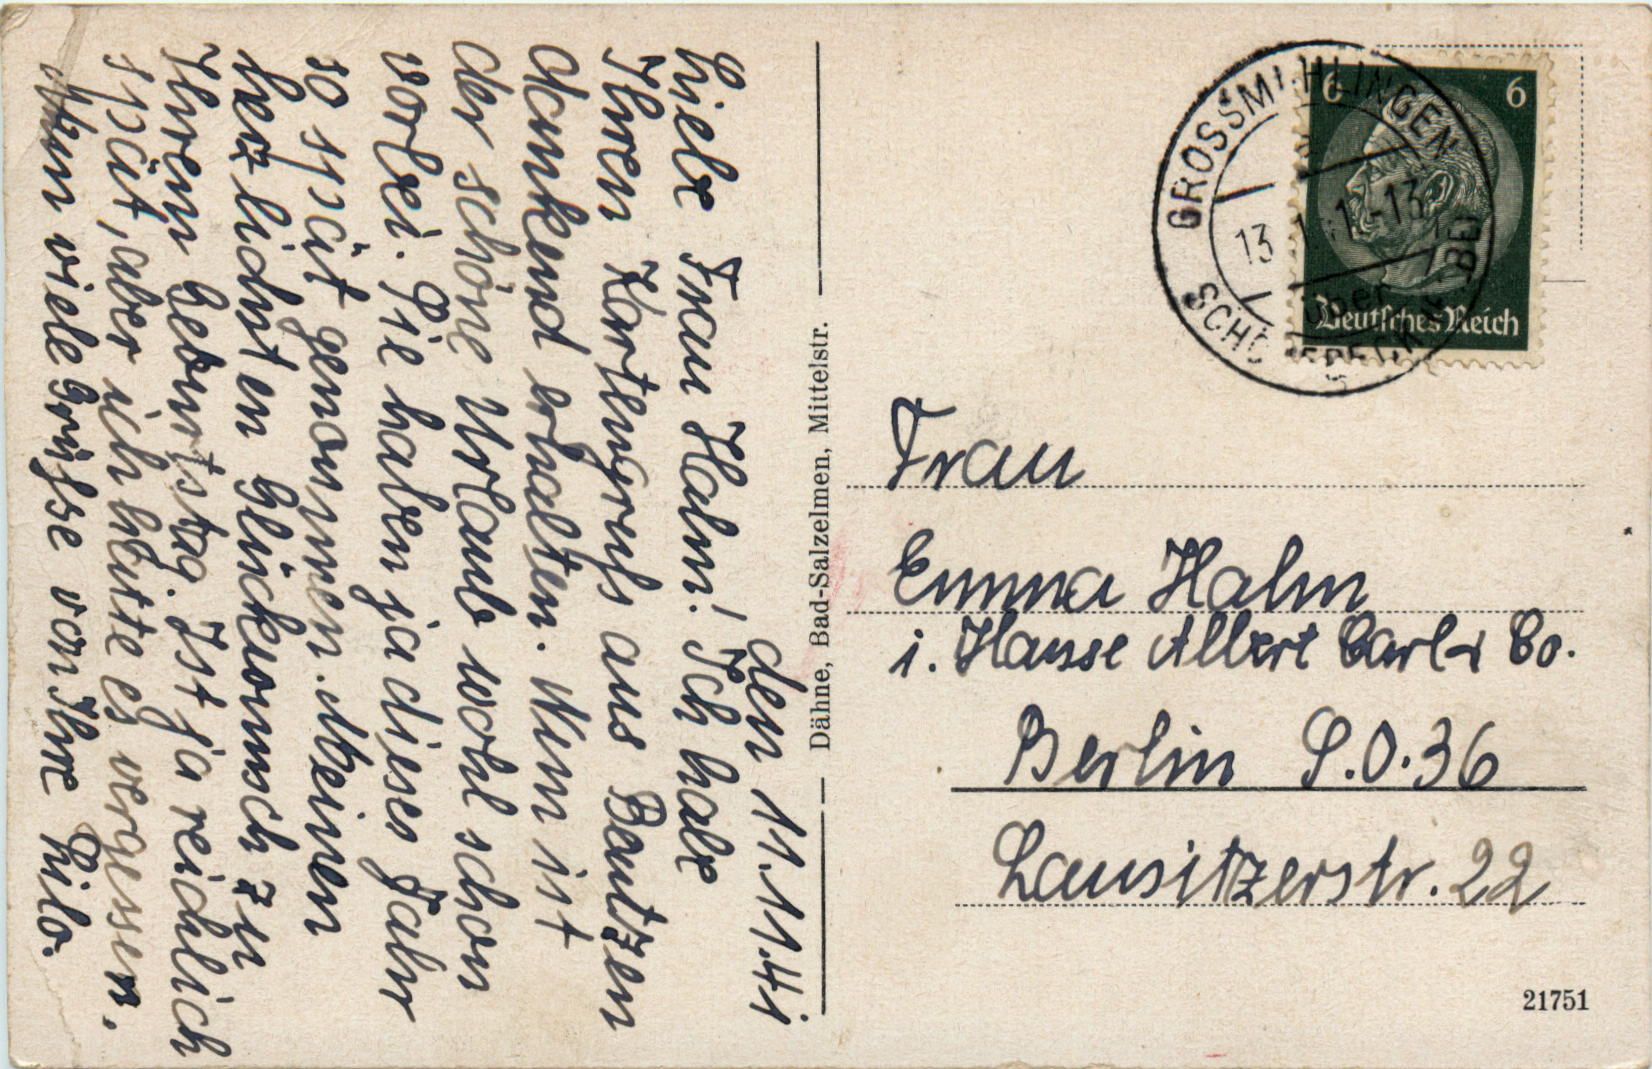 den 11.11.41
Liebe Frau Hahn! Ich habe
Ihren Kartengruß aus Bautzen
dankend erhalten. Nun ist
der schöne Urlaub wohl schon
vorbei. Sie haben ja dieses Jahr
so spät genommen. Meinen
herzlichsten Glückwunsch zu
Ihrem Geburtstag. Ist ja reichlich
spät, aber ich hatte es vergessen.
Nun viele Grüße von Ihre Lilo.
Dähne, Bad-Salzelmen, Mittelstr.
GROSSMÜHLINGEN
über
SCHÖNEBECK
13
-13
6 6
Deutsches Reich
Frau
Emma Hahn
i. Hause Albert Carl & Co.
Berlin S.O.36
Lausitzerstr. 22
21751